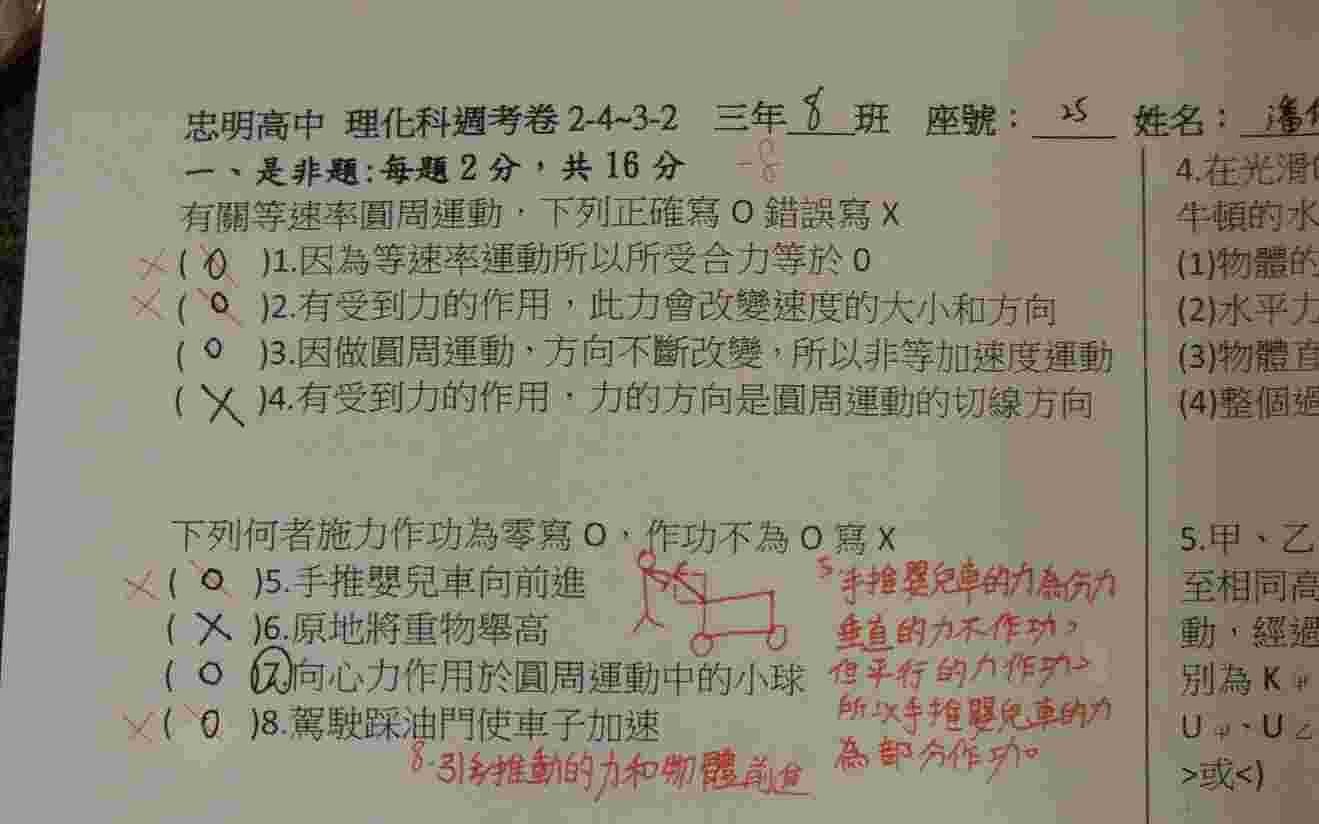 忠明高中 理化科週考卷 2-4~3-2 三年 8 班 座號: 25 姓名: 潘
一、是非題:每題 2 分,共 16 分 -8
有關等速率圓周運動,下列正確寫 O 錯誤寫 X
( O )1.因為等速率運動所以所受合力等於 0
( O )2.有受到力的作用,此力會改變速度的大小和方向
( O )3.因做圓周運動、方向不斷改變,所以非等加速度運動
( X )4.有受到力的作用,力的方向是圓周運動的切線方向
下列何者施力作功為零寫 O、作功不為 O 寫 X
( O )5.手推嬰兒車向前進
( X )6.原地將重物舉高
( O )7.向心力作用於圓周運動中的小球
( O )8.駕駛踩油門使車子加速
8.引擎推動的力和物體前進
5.手推嬰兒車的力為分力
垂直的力不作功,
但平行的力作功,
所以手推嬰兒車的力
為部分作功。
4.在光滑
牛頓的水
(1)物體的
(2)水平力
(3)物體直
(4)整個過
5.甲、乙
至相同高
動,經過
別為 K 甲
U 甲、U 乙
>或<)